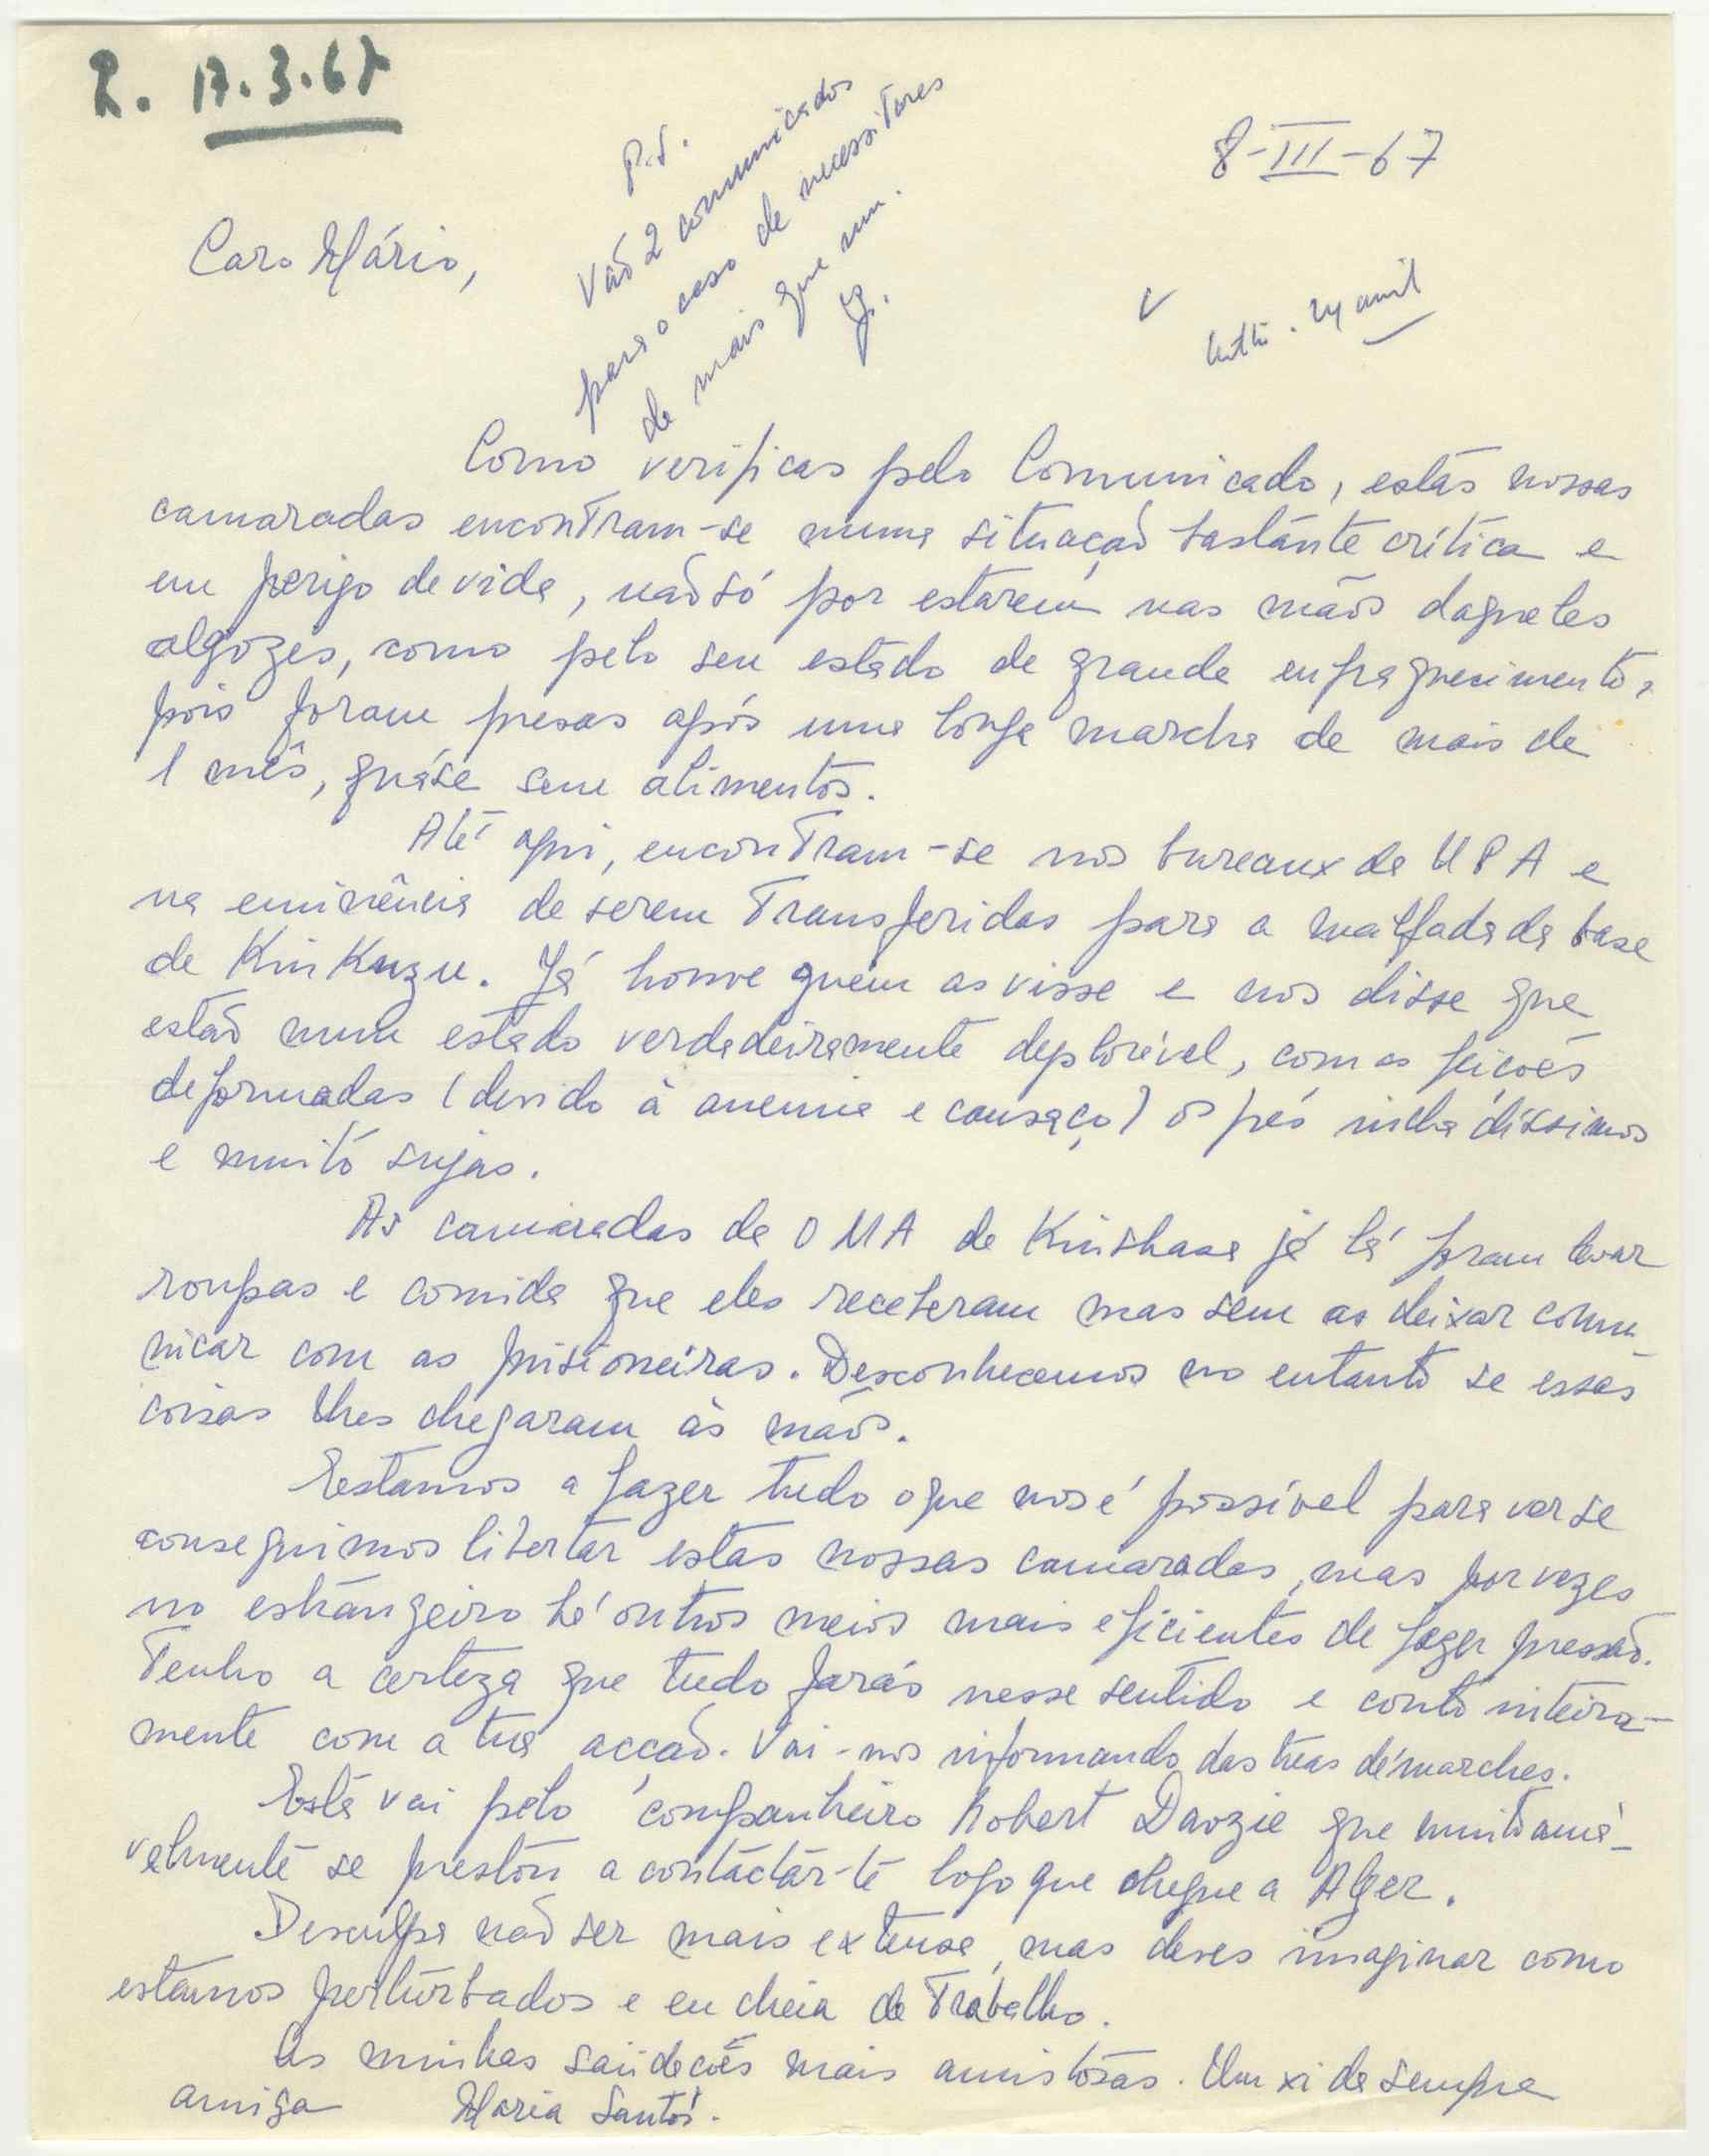 R. 17.3.67
8-III-67
P.S.
Vão 2 comunicados
para o caso de necessitares
de mais que um.
Caro Mário,
Como verificas pelo Comunicado, estas nossas
camaradas encontram-se numa situação bastante crítica e
em perigo de vida, não só por estarem nas mãos daqueles
algozes, como pelo seu estado de grande enfraquecimento,
pois foram presas após uma longa marcha de mais de
1 mês, quáse sem alimentos.
Até aqui, encontram-se nos bureaux da UPA e
na eminência de serem transferidas para a malfadada base
de KinKuzu. Já houve quem as visse e nos disse que
estão num estado verdadeiramente deplorável, com as feições
deformadas (devido à anemia e cansaço) os pés inchadíssimos
e muito sujas.
As camaradas da OMA de Kinshasa já lá foram levar
roupas e comida que eles receberam mas sem as deixar comu-
nicar com as prisioneiras. Desconhecemos no entanto se essas
coisas lhes chegaram às mãos.
Estamos a fazer tudo o que nos é possível para ver se
conseguimos libertar estas nossas camaradas, mas por vezes
no estrangeiro há outros meios mais eficientes de fazer pressão.
Tenho a certeza que tudo farás nesse sentido e conto inteira-
mente com a tua acção. Vai-nos informando das tuas démarches.
Esta vai pelo companheiro Robert Davezie que muito amà-
velmente se prestou a contactar-te logo que chegue a Alger.
Desculpa não ser mais extensa, mas deves imaginar como
estamos perturbados e eu cheia de trabalho.
As minhas saüdações mais amistosas. Um xi da sempre
amiga Maria Santos.